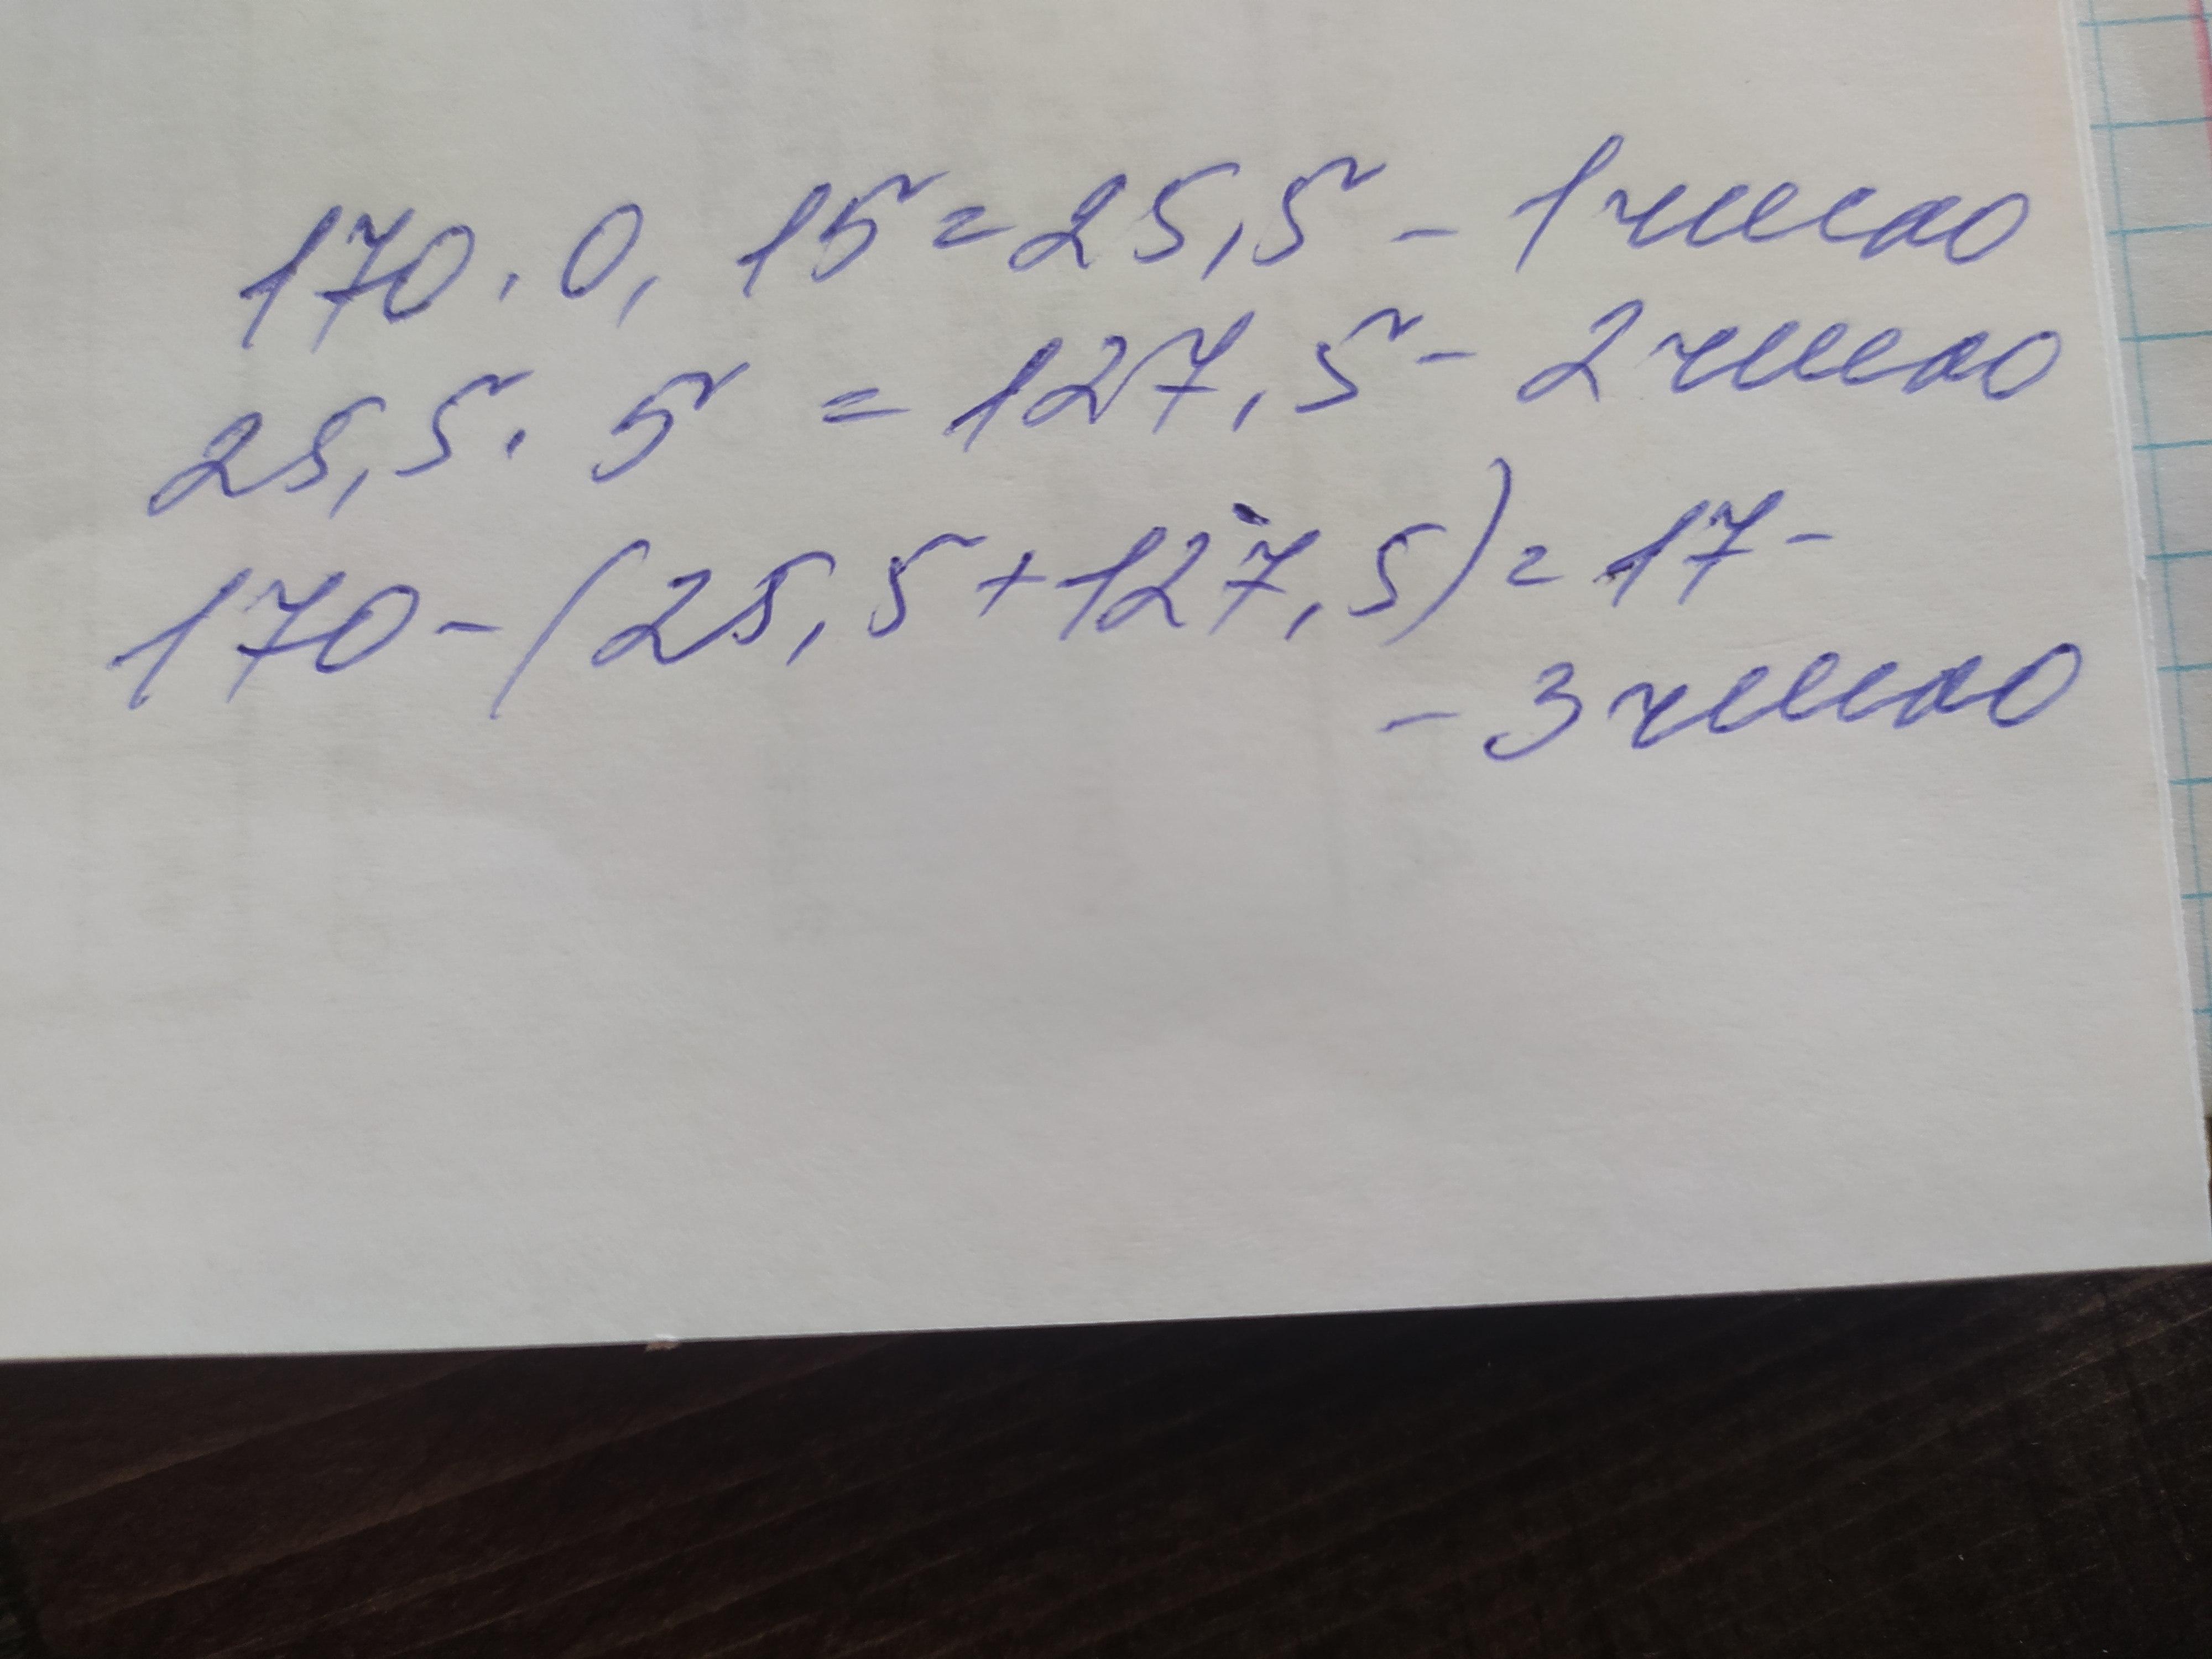 170 · 0,15 = 25,5 - 1 число
25,5 · 5 = 127,5 - 2 число
170 - (25,5 + 127,5) = 17 -
- 3 число